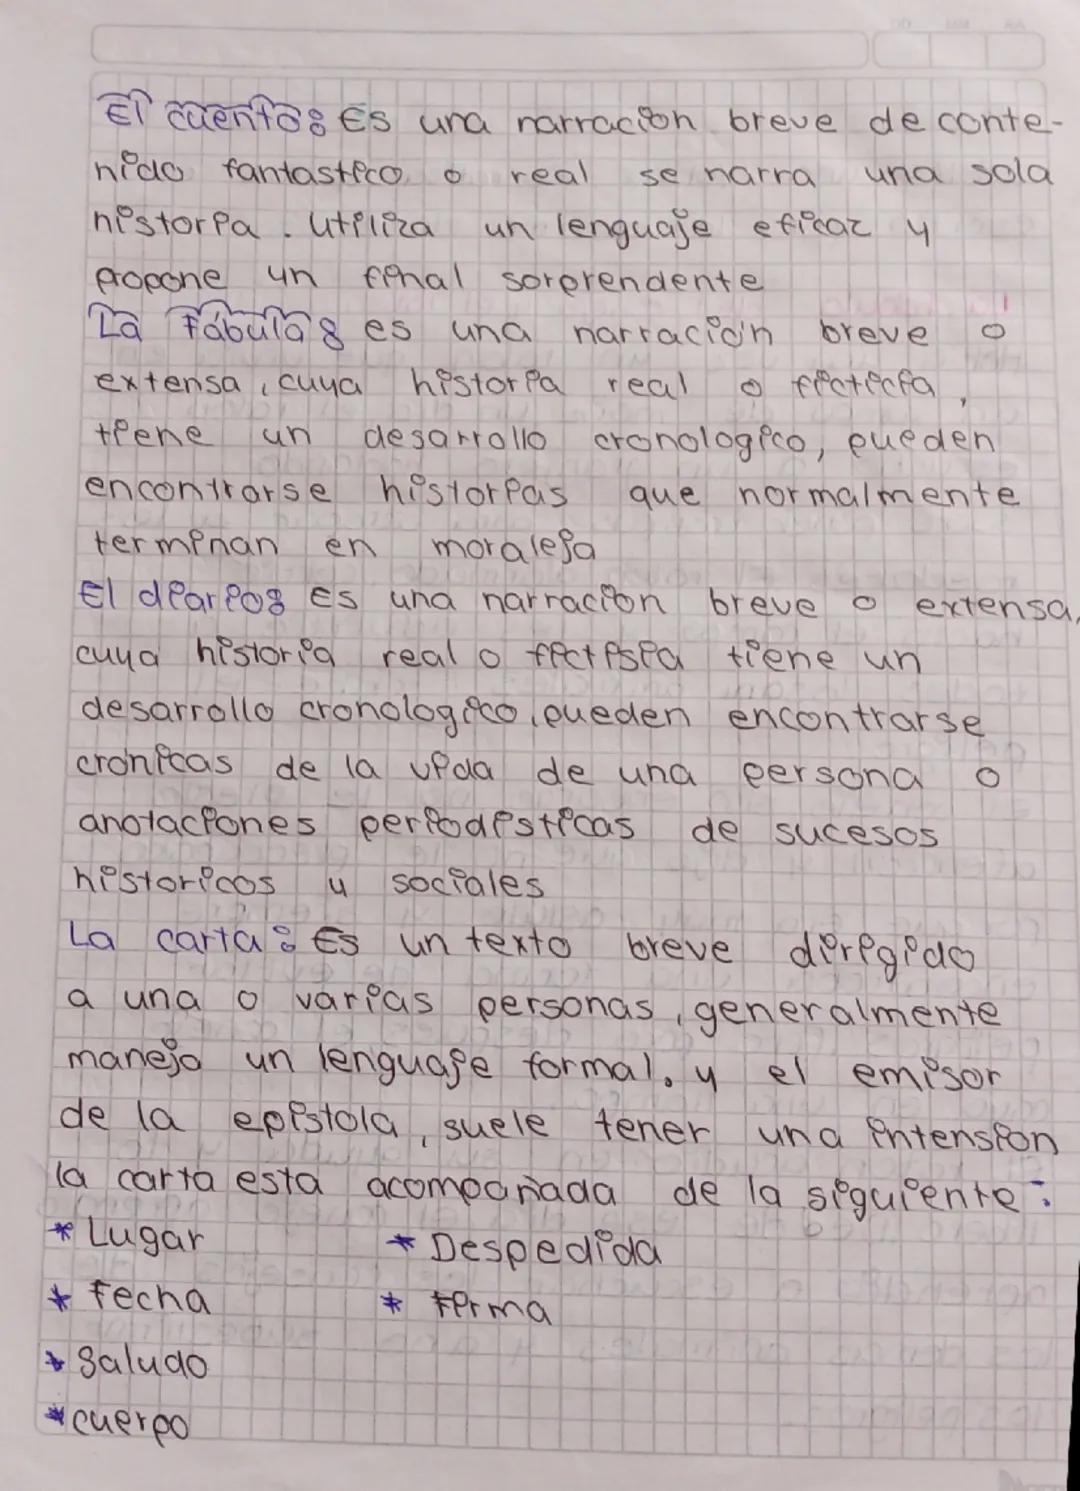 El cuento: Es una narracion breve de conte-
nido fantastico o real se narra una sola
historia. utiliza un lenguaje eficaz y
propone un final sorprendente
La Fábula: es una narración breve o
extensa, cuya historia real o ficticia,
tiene un desarrollo cronologico, pueden
encontrarse historias que normalmente
terminan en moraleja
El diario: Es una narracion breve o extensa,
cuya historia real o fictisia tiene un
desarrollo cronologico, pueden encontrarse
cronicas de la vida de una persona o
anotaciones periodisticas de sucesos
historicos y sociales
La carta: Es un texto breve dirigido
a una o varias personas, generalmente
maneja un lenguaje formal. y el emisor
de la epistola, suele tener una intension
la carta esta acompañada de la siguiente:
* Lugar * Despedida
* fecha * Firma
* Saludo
* cuerpo